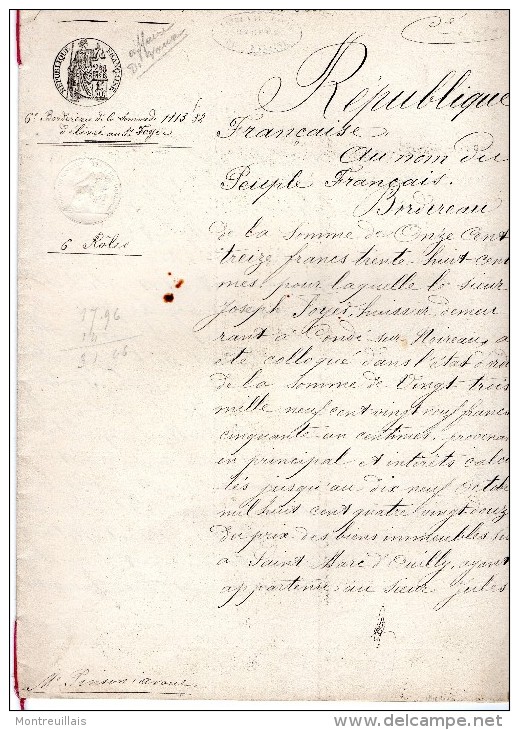 RÉPUBLIQUE FRANÇAISE
affaire
6e Bordereau de la somme de 1113 f 38
délivré au Sr Foyer
6e Rôle
17.96
31 06
République
Française
Au nom du
Peuple Français.
Bordereau
de la somme de Onze cent
treize francs trente huit centi
mes pour laquelle le sieur
Joseph Foyer, huissier demeu
rant à Condé sur Noireau, a
été colloqué dans l'état d'ordre
de la somme de Vingt trois
mille neuf cent vingt neuf francs
cinquante un centimes, provenant
en principal & intérêts calcu
lés jusqu'au dix neuf octobre
mil huit cent quatre vingt douze
du prix des biens immeubles sis
à Saint Marc d'Ouilly, ayant
appartenu au sieur Jules
Me Pinson avoué
Montreuillais
delcampe.net